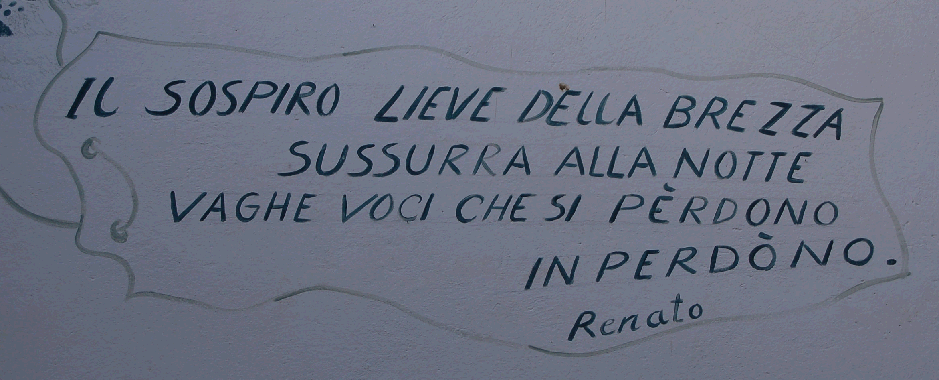 IL SOSPIRO LIEVE DELLA BREZZA
SUSSURRA ALLA NOTTE
VAGHE VOCI CHE SI PÈRDONO
IN PERDÒNO.
Renato